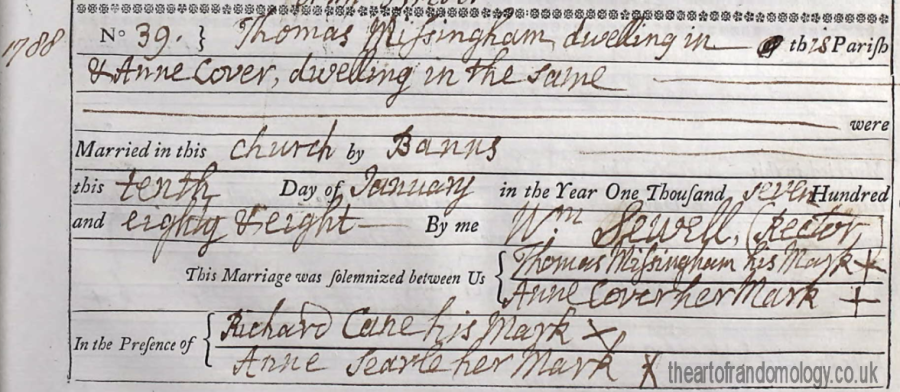 1788
No 39. } Thomas Miſsingham dwelling in this Pariſh
& Anne Cover, dwelling in the same
were
Married in this church by Banns
this tenth Day of January in the Year One Thouſand seven Hundred
and eighty & eight By me Wm Sewell, Rector
This Marriage was ſolemnized between Us { Thomas Miſsingham his Mark +
Anne Cover her Mark +
In the Presence of { Richard Cane his Mark X
Anne Searle her Mark X
theartofrandomology.co.uk